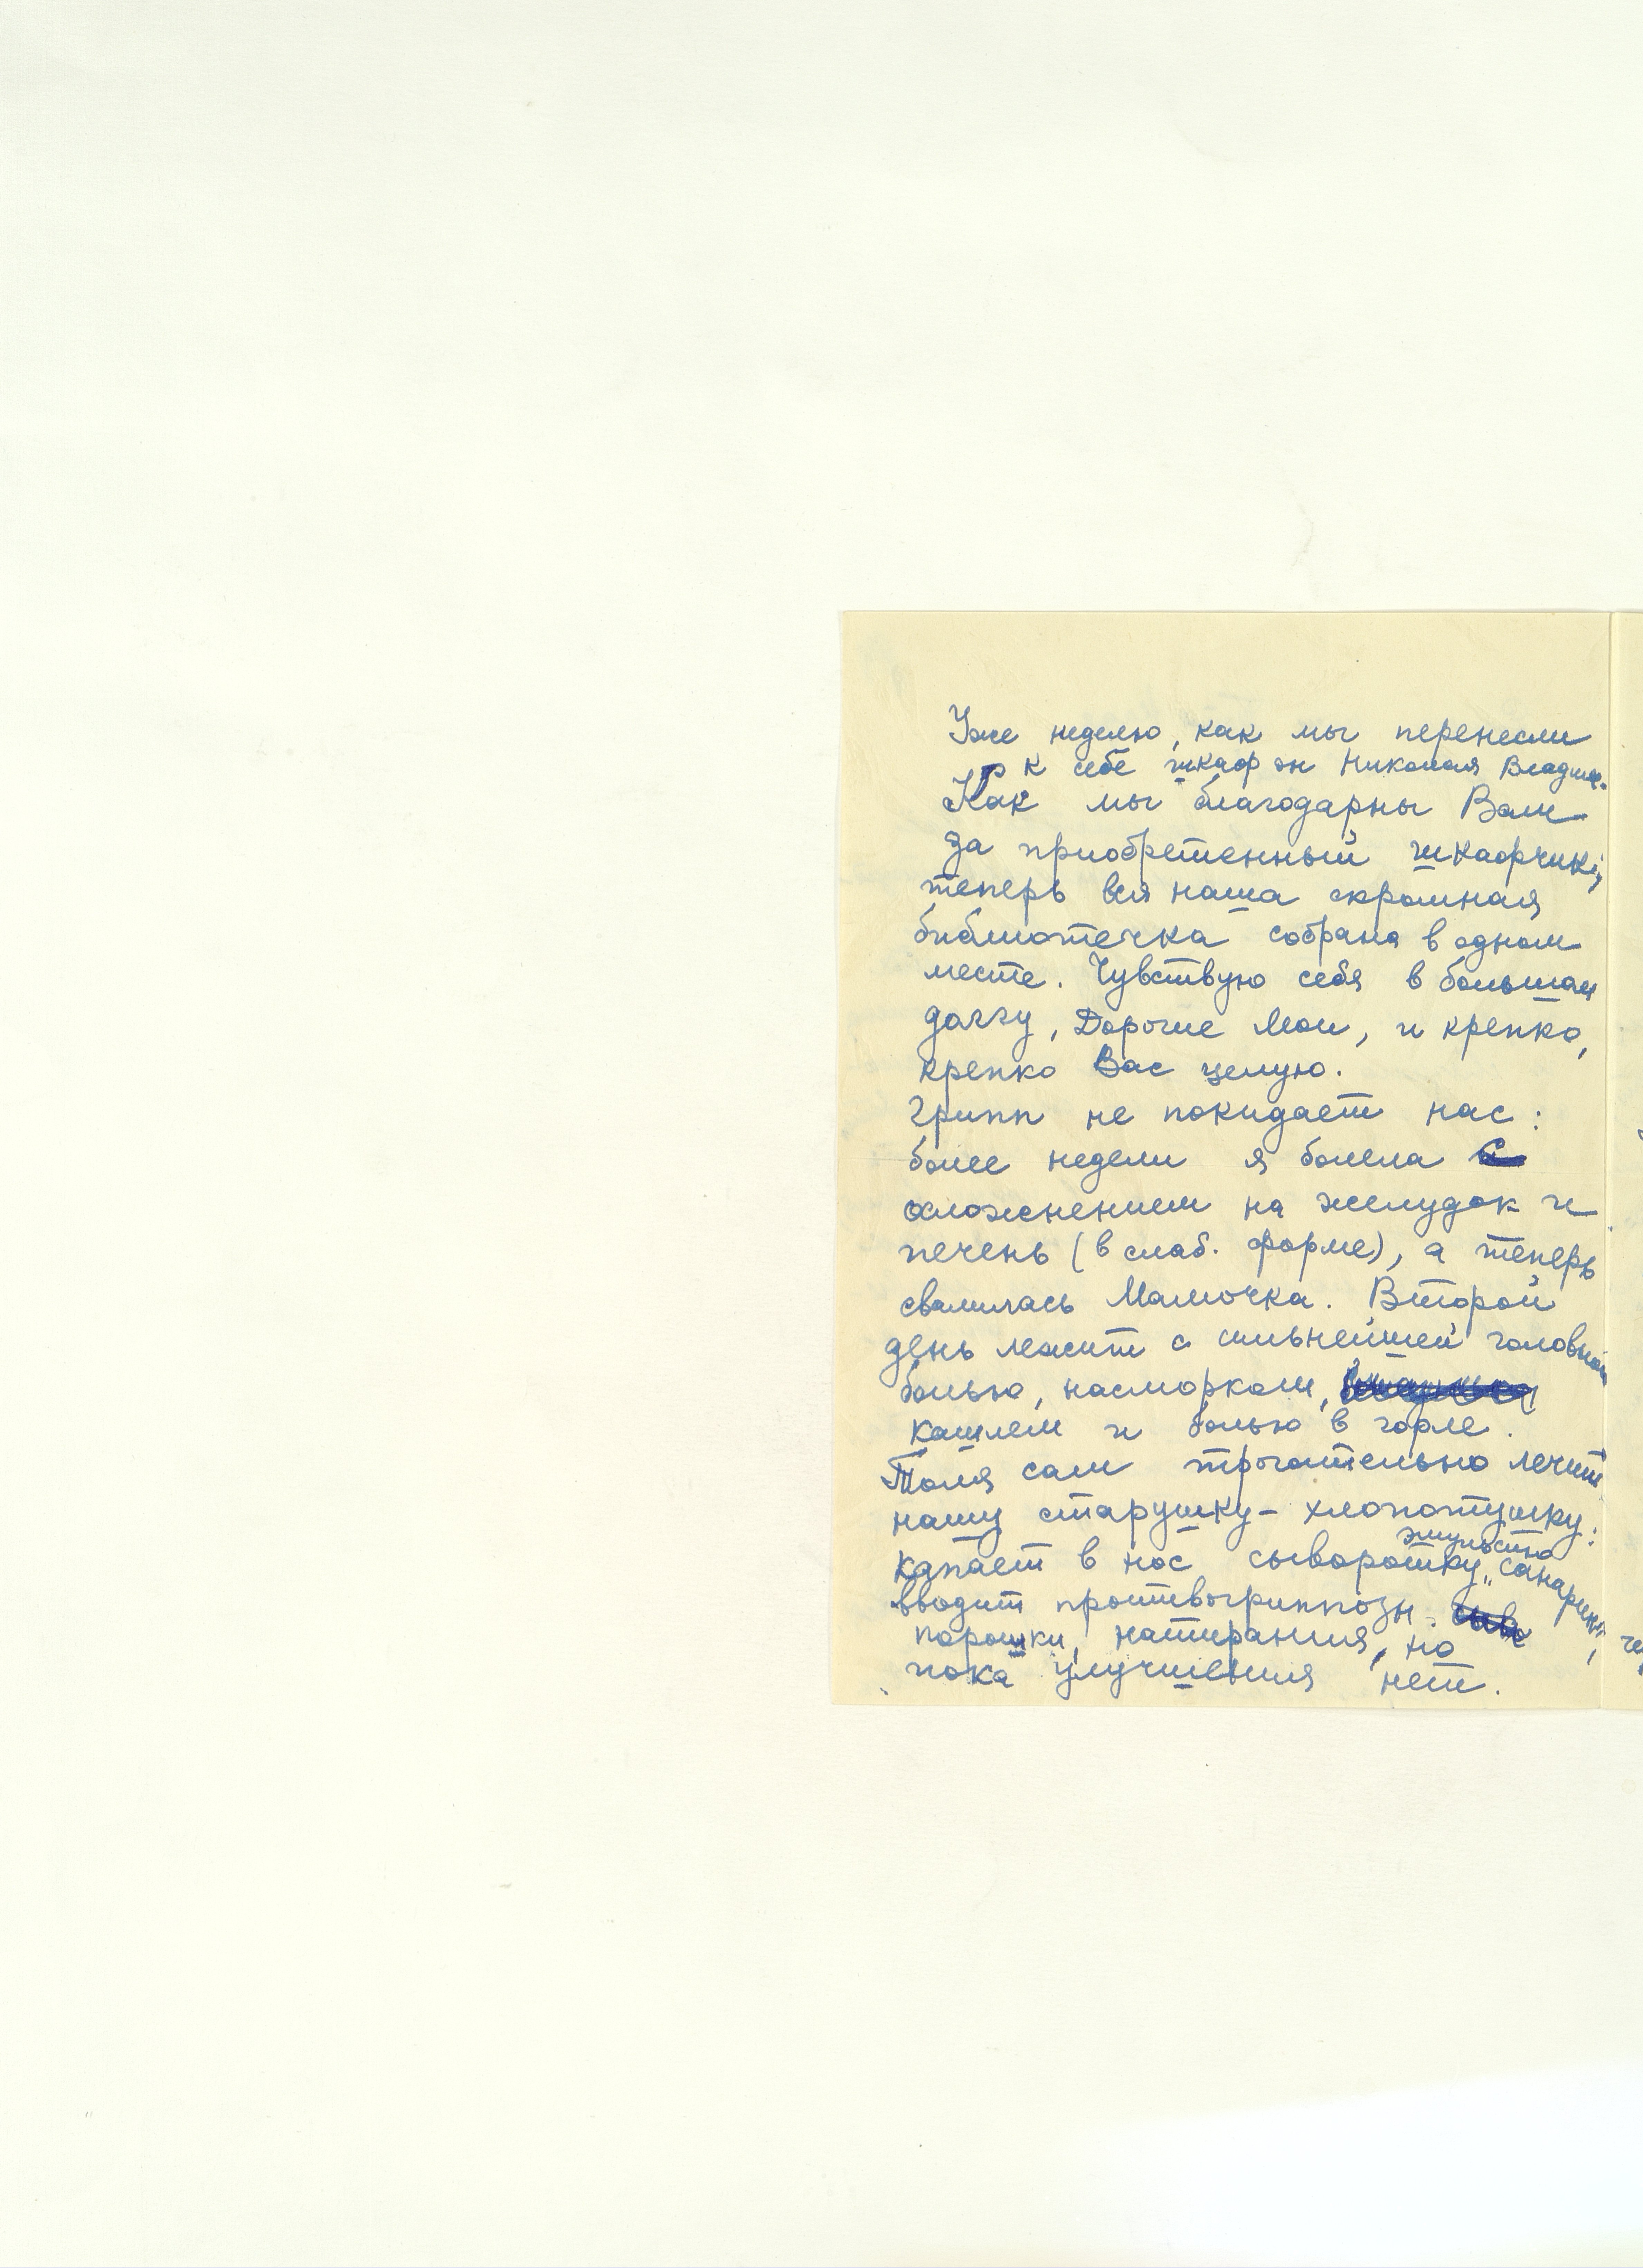 Уже неделю, как мы перенесли
к себе шкаф он Николая Владим.
Как мы благодарны Вам
за приобретенный шкафчик;
теперь вся наша скромная
библиотечка собрана в одном
месте. Чувствую себя в большом
долгу, Дорогие Мои, и крепко,
крепко Вас целую.
Грипп не покидает нас:
более недели я болела с
осложнением на желудок и
печень (в слаб. форме), а теперь
свалилась Мамочка. Второй
день лежит с сильнейшей головной
болью, насморком,
кашлем и болью в горле.
Толя сам трогательно лечит
нашу старушку-хлопотушку:
эмульсию
капает в нос сыворотку, „санарин",
вводит противогриппозн.
порошки, натирания, но
пока улучшения нет.